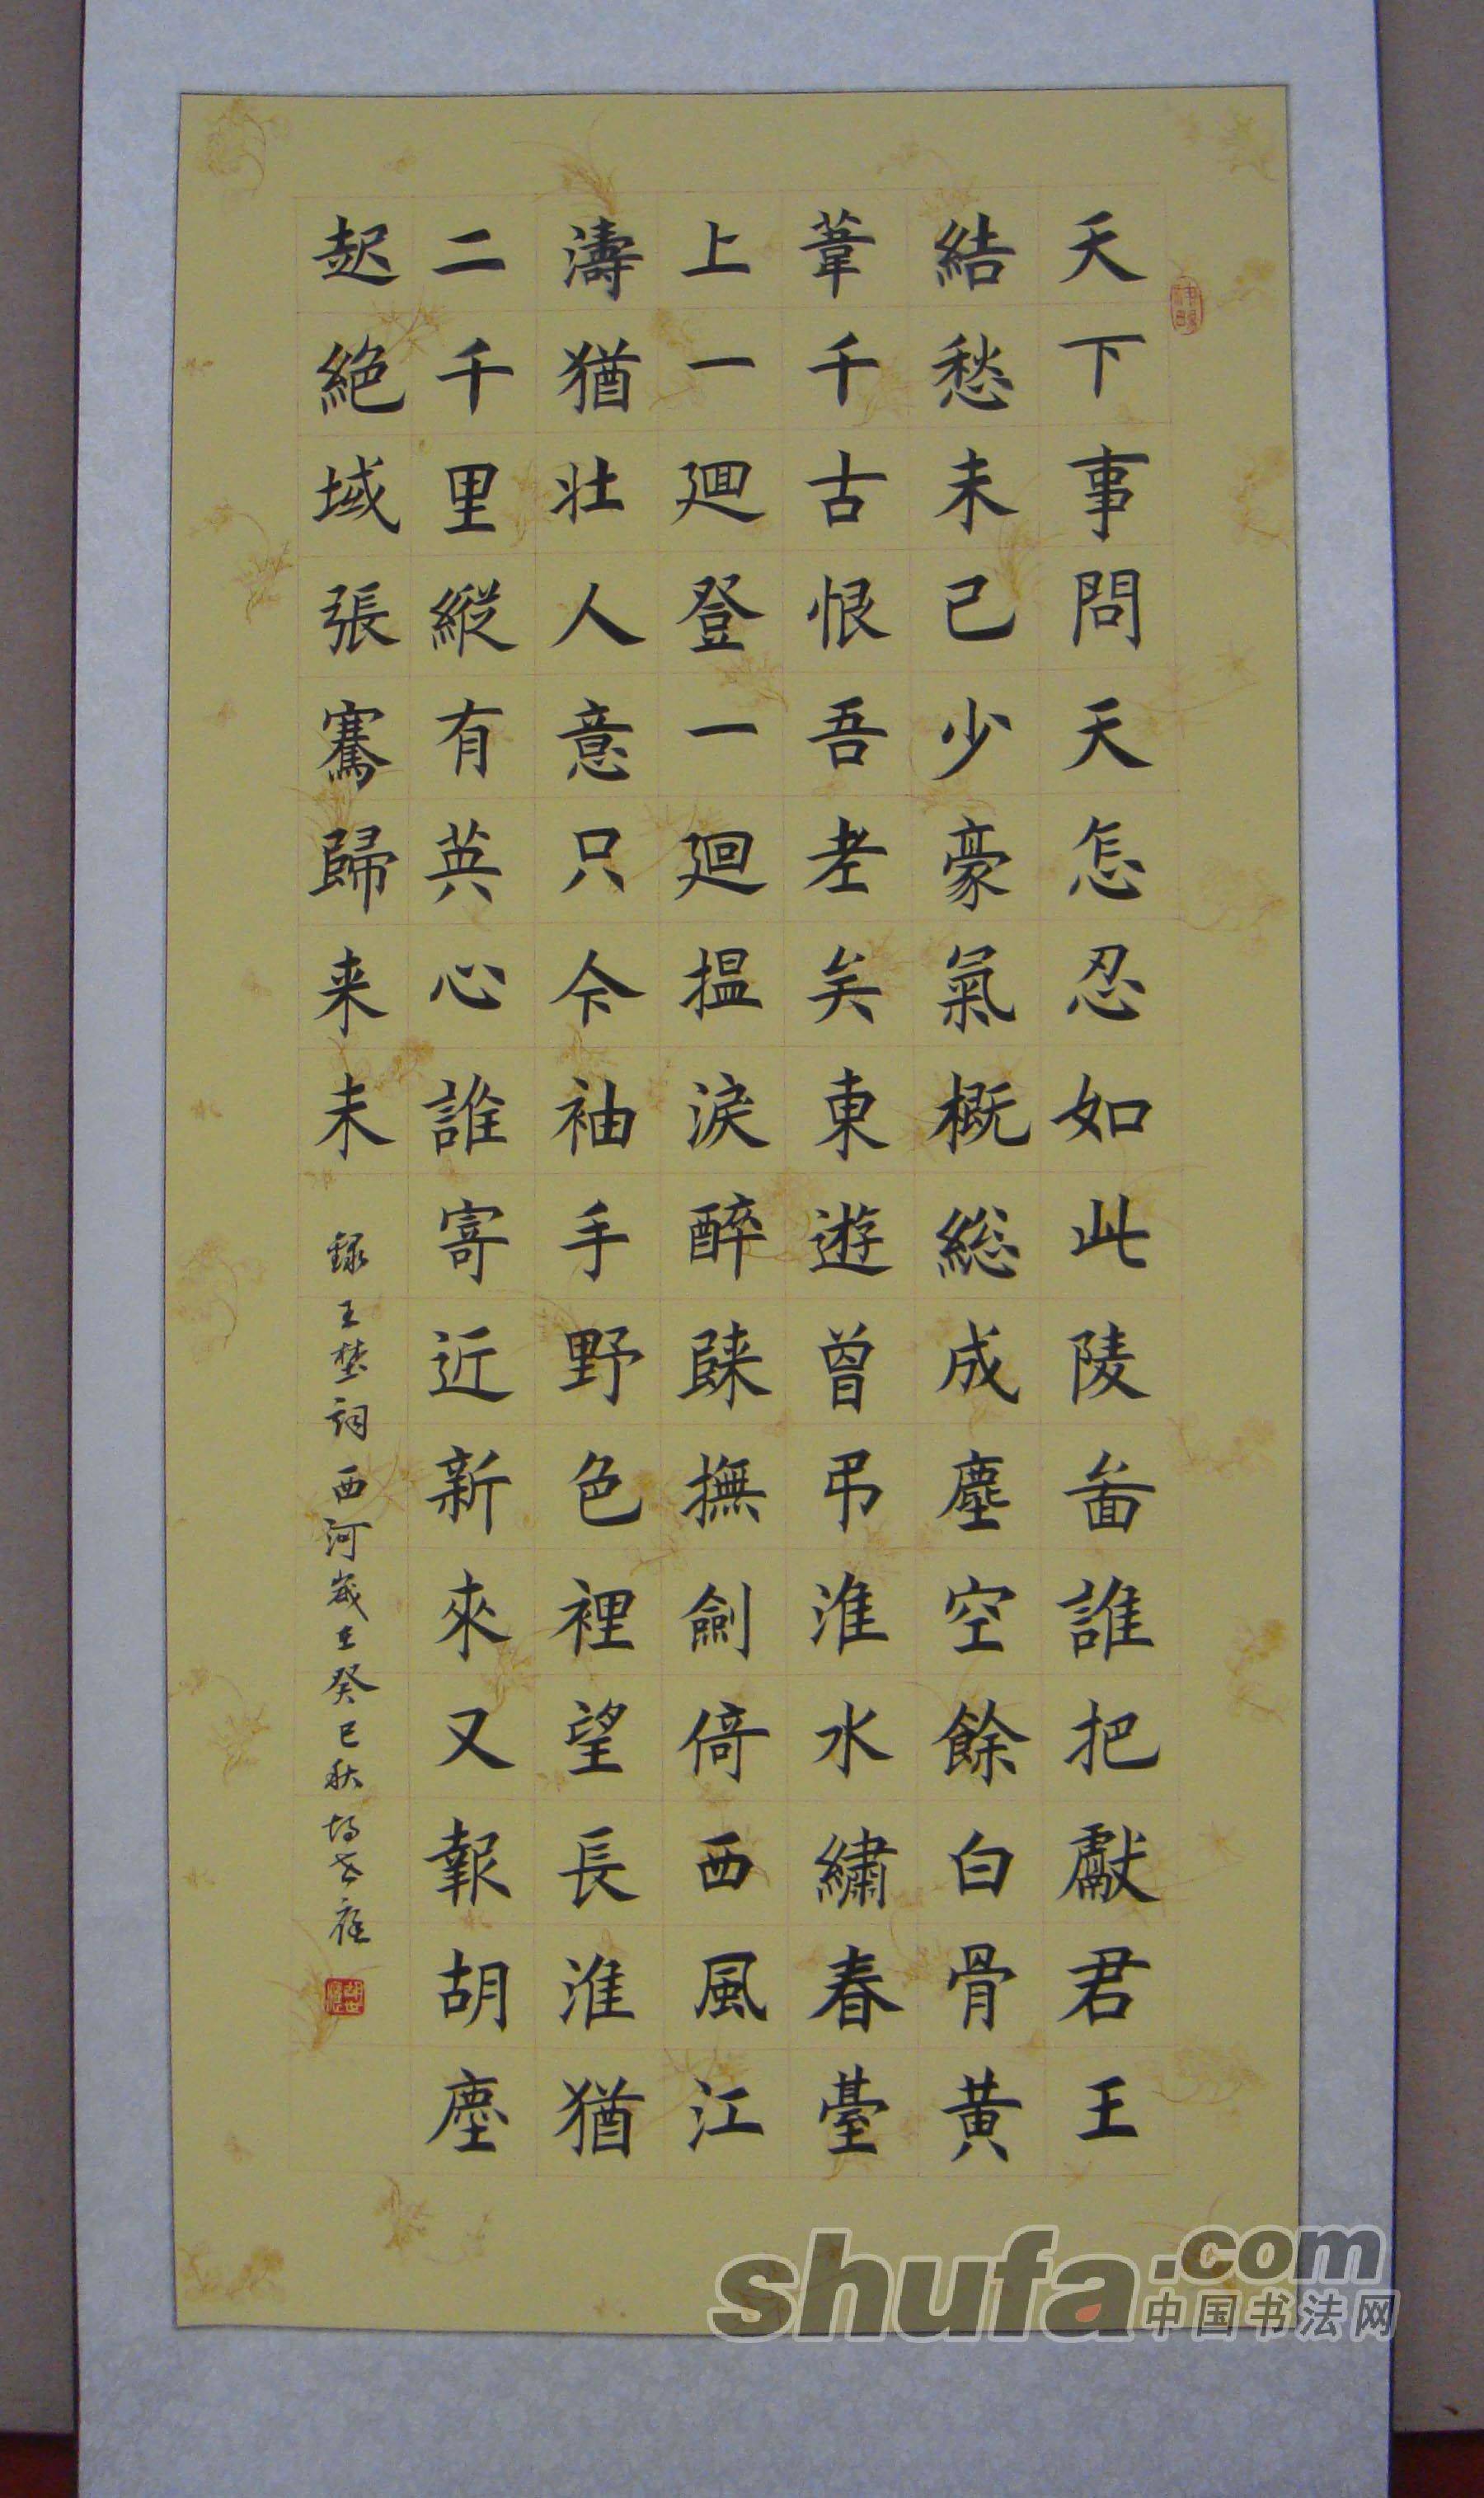 天下事問天怎忍如此陵啚誰把獻君王
結愁未已少豪氣概総成塵空餘白骨黄
葦千古恨吾老矣東遊曾弔淮水繡春臺
上一迴登一迴揾淚醉歸撫劍倚西風江
濤猶壯人意只今袖手野色裡望長淮猶
二千里縱有英心誰寄近新來又報胡塵
起絶域張騫歸来未
録王埜詞西河歲在癸巳秋
shufa.com
中国书法网